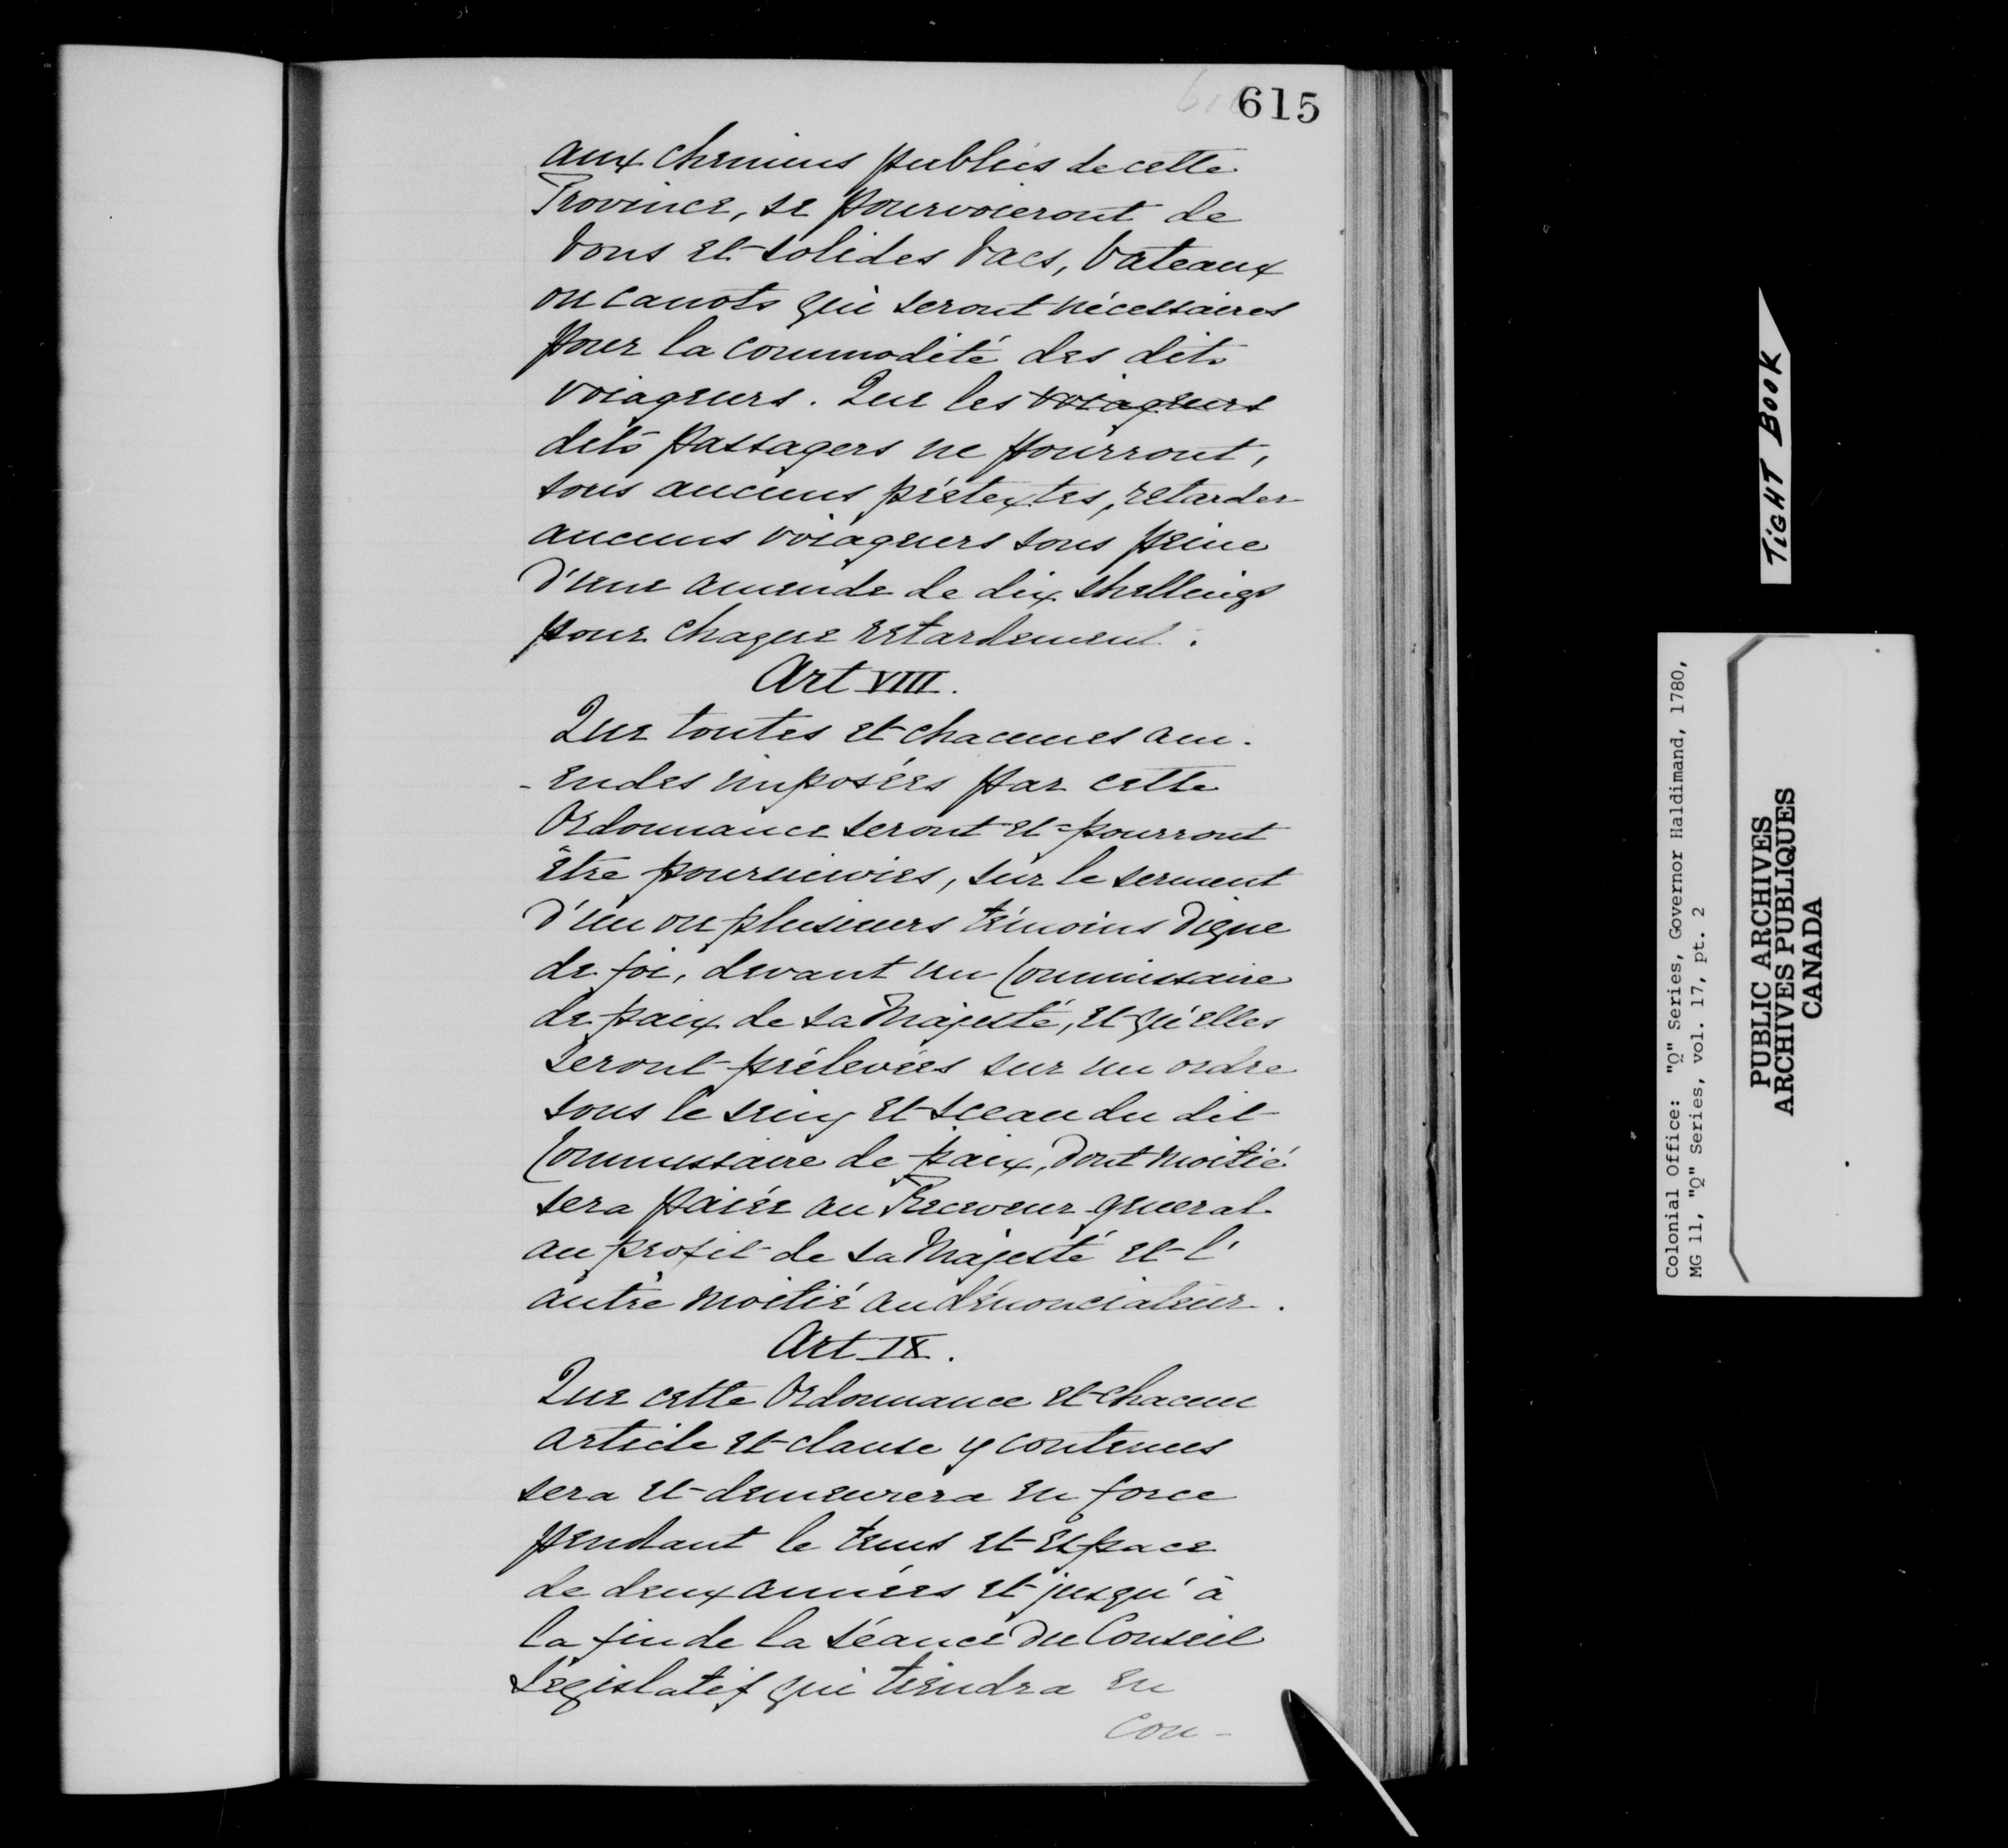 615
aux chemins publics de cette
Province, se pourvoieront de
bons et solides bacs, bateaux
ou canots qui seront nécessaires
pour la commodité des dits
voiageurs. Que les voiageurs
dits passagers ne pourront,
sous aucuns prétextes, retarder
aucuns voiageurs sous peine
d'une amende de dix shellings
pour chaque retardement.
Art VIII.
Que toutes et chacunes am-
-endes imposées par cette
Ordonnance seront et pourront
être poursuivies, sur le serment
d'un ou plusieurs témoins digne
de foi, devant un Commissaire
de paix de sa Majesté, et qu'elles
seront prélevées sur un ordre
sous le seing et sceau du dit
Commissaire de paix, dont moitié
sera païée au Receveur general
au profit de sa Majesté et l'
autre moitié au dénonciateur.
Art IX.
Que cette Ordonnance et chacun
article et clause y contenues
sera et demeurera en force
pendant le tems et espace
de deux années et jusqu'à
la fin de la séance du Conseil
Législatif qui tiendra en
con-
TIGHT BOOK
Colonial Office: "Q" Series, Governor Haldimand, 1780,
MG 11, "Q" Series, vol. 17, pt. 2
PUBLIC ARCHIVES
ARCHIVES PUBLIQUES
CANADA